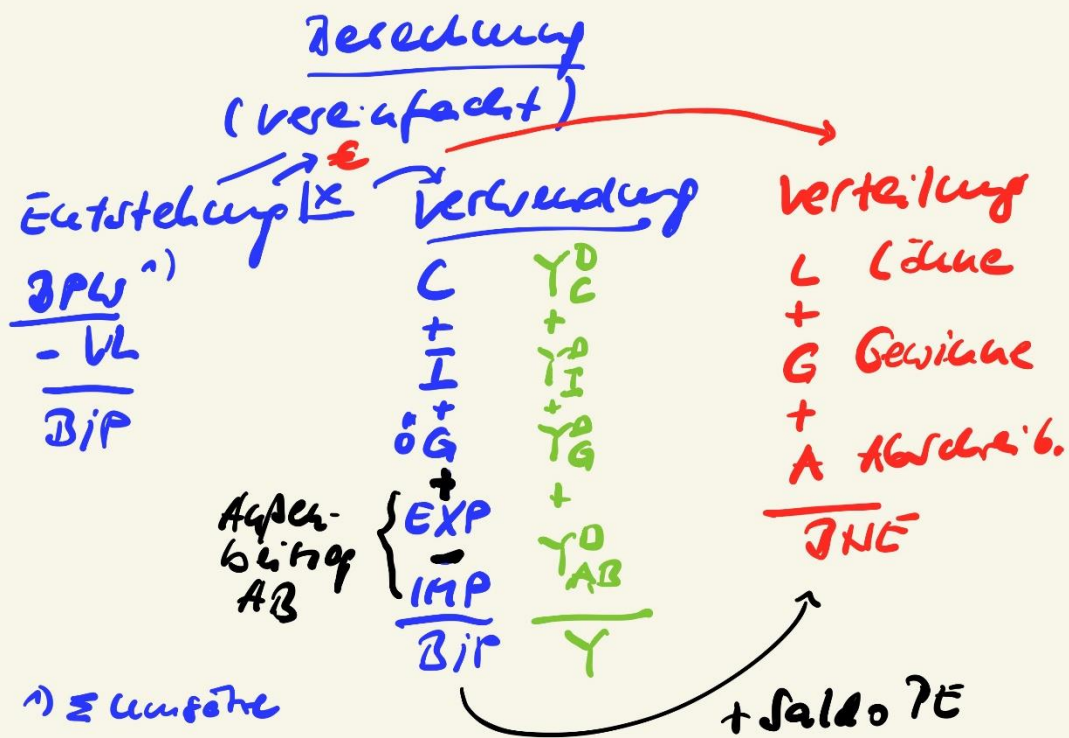 Berechnung
(vereinfacht)
€
Entstehung
BPW 1)
- VL
BiP
Verwendung
C
+
I
+
ÖG
+
EXP
-
IMP
BiP
Außen-
beitrag
AB
Y D C
+
Y D I
+
Y D G
+
Y D AB
Y
Verteilung
L Löhne
+
G Gewinne
+
A Abschreib.
BNE
+ Saldo PE
1) Σ Umsätze